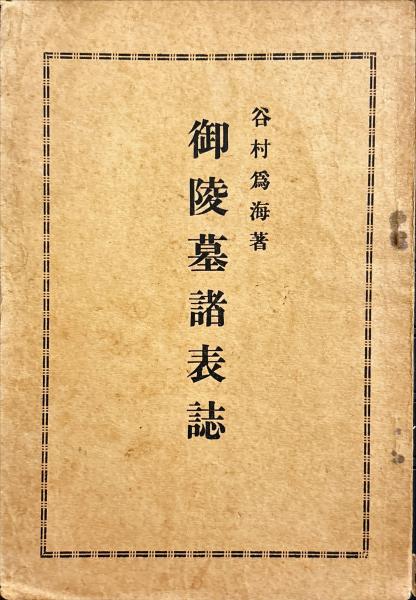 谷村爲海著
御陵墓諸表誌